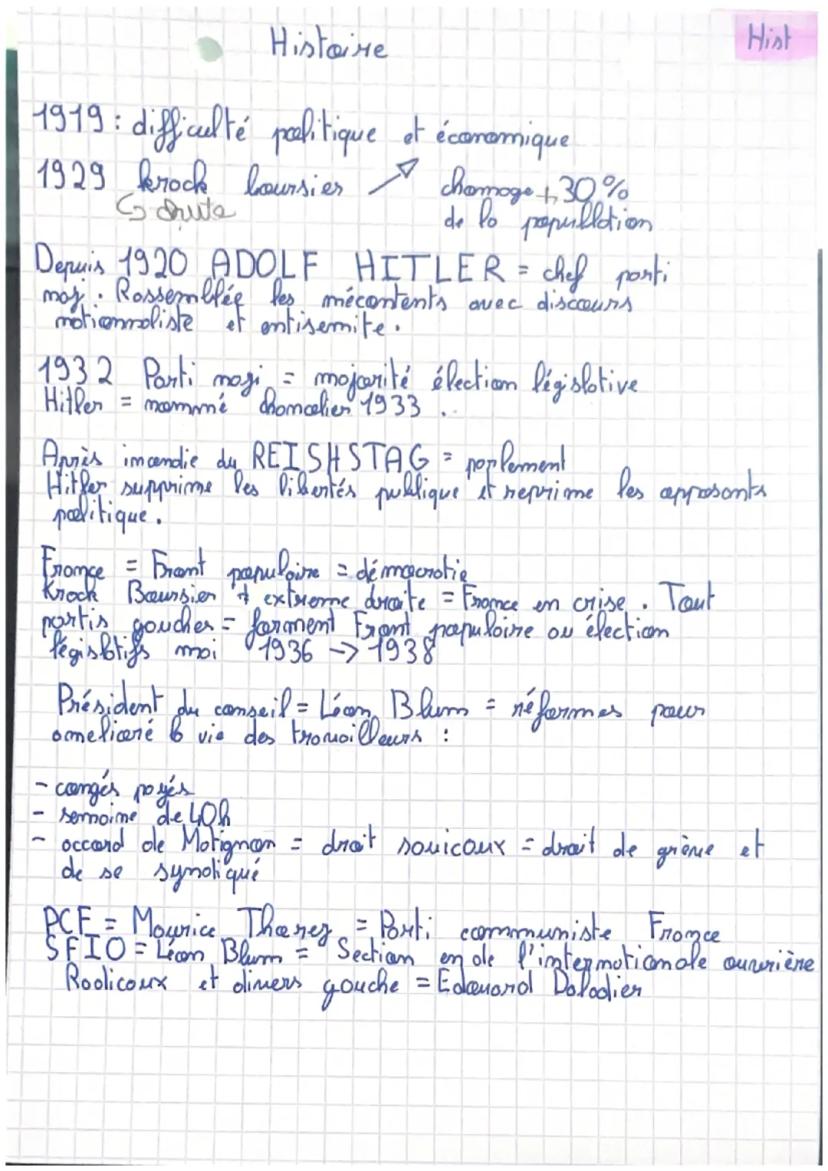 Histoire
Hist
1919 : difficulté politique et économique
1929 krock boursier ↗ chomage + 30%
↪ chute
de la popullation
Depuis 1920 ADOLF HITLER = chef parti
nazi. Rassemblée les mécontents avec discours
nationnaliste et antisemite.
1932 Parti nazi = majorité élection législative
Hitler = nommé chancelier 1933.
Après incendie du REISHSTAG = parlement
Hitler supprime les libertés publique et reprime les opposants
politique.
France = Front populaire = démocratie
Krock Boursier + extreme droite = France en crise. Tout
partis gauches = forment Front populaire au élection
législatifs mai 1936 → 1938
Président du conseil = Léon Blum = réformes pour
amelioré la vie des travailleurs :
- congés payés
- semaine de 40h
- accord de Matignon = droit souicaux = droit de grève et
de se syndiqué
PCF = Maurice Thorez = Parti communiste France
SFIO = Léon Blum = Section en de l'internationale ouvrière
Radicaux et divers gauche = Edouard Daladier